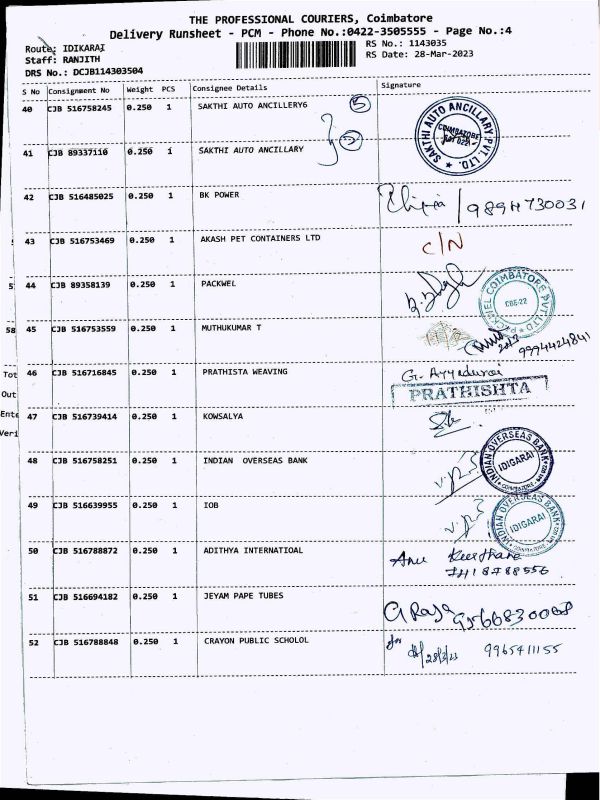 THE PROFESSIONAL COURIERS, Coimbatore
Delivery Runsheet - PCM - Phone No.:0422-3505555 - Page No.:4
Route: IDIKARAI
RS No.: 1143035
Staff: RANJITH
RS Date: 28-Mar-2023
DRS No.: DCJB114303504
S No Consignment No Weight PCS Consignee Details Signature
40 CJB 516758245 0.250 1 SAKTHI AUTO ANCILLERY6 5
SAKTHI AUTO ANCILLARY PVT. LTD. COIMBATORE
2
41 CJB 89337116 0.250 1 SAKTHI AUTO ANCILLARY
42 CJB 516485025 0.250 1 BK POWER
43 CJB 516753469 0.250 1 AKASH PET CONTAINERS LTD C/N
44 CJB 89358139 0.250 1 PACKWEL
PACKWEL COIMBATORE PVT LTD CBE-22
58 45 CJB 516753559 0.250 1 MUTHUKUMAR T
9994424841
Tot 46 CJB 516716845 0.250 1 PRATHISTA WEAVING G. Ayyadurai
Out
PRATHISHTA
Ente
47 CJB 516739414 0.250 1 KOWSALYA
Veri
48 CJB 516758251 0.250 1 INDIAN OVERSEAS BANK
INDIAN OVERSEAS BANK IDIGARAI COIMBATORE
49 CJB 516639955 0.250 1 IOB
INDIAN OVERSEAS BANK IDIGARAI COIMBATORE
50 CJB 516788872 0.250 1 ADITHYA INTERNATIOAL Anu Keerthana
7418788556
51 CJB 516694182 0.250 1 JEYAM PAPE TUBES
G Raja
52 CJB 516788848 0.250 1 CRAYON PUBLIC SCHOLOL for
28/3/23 9965411155